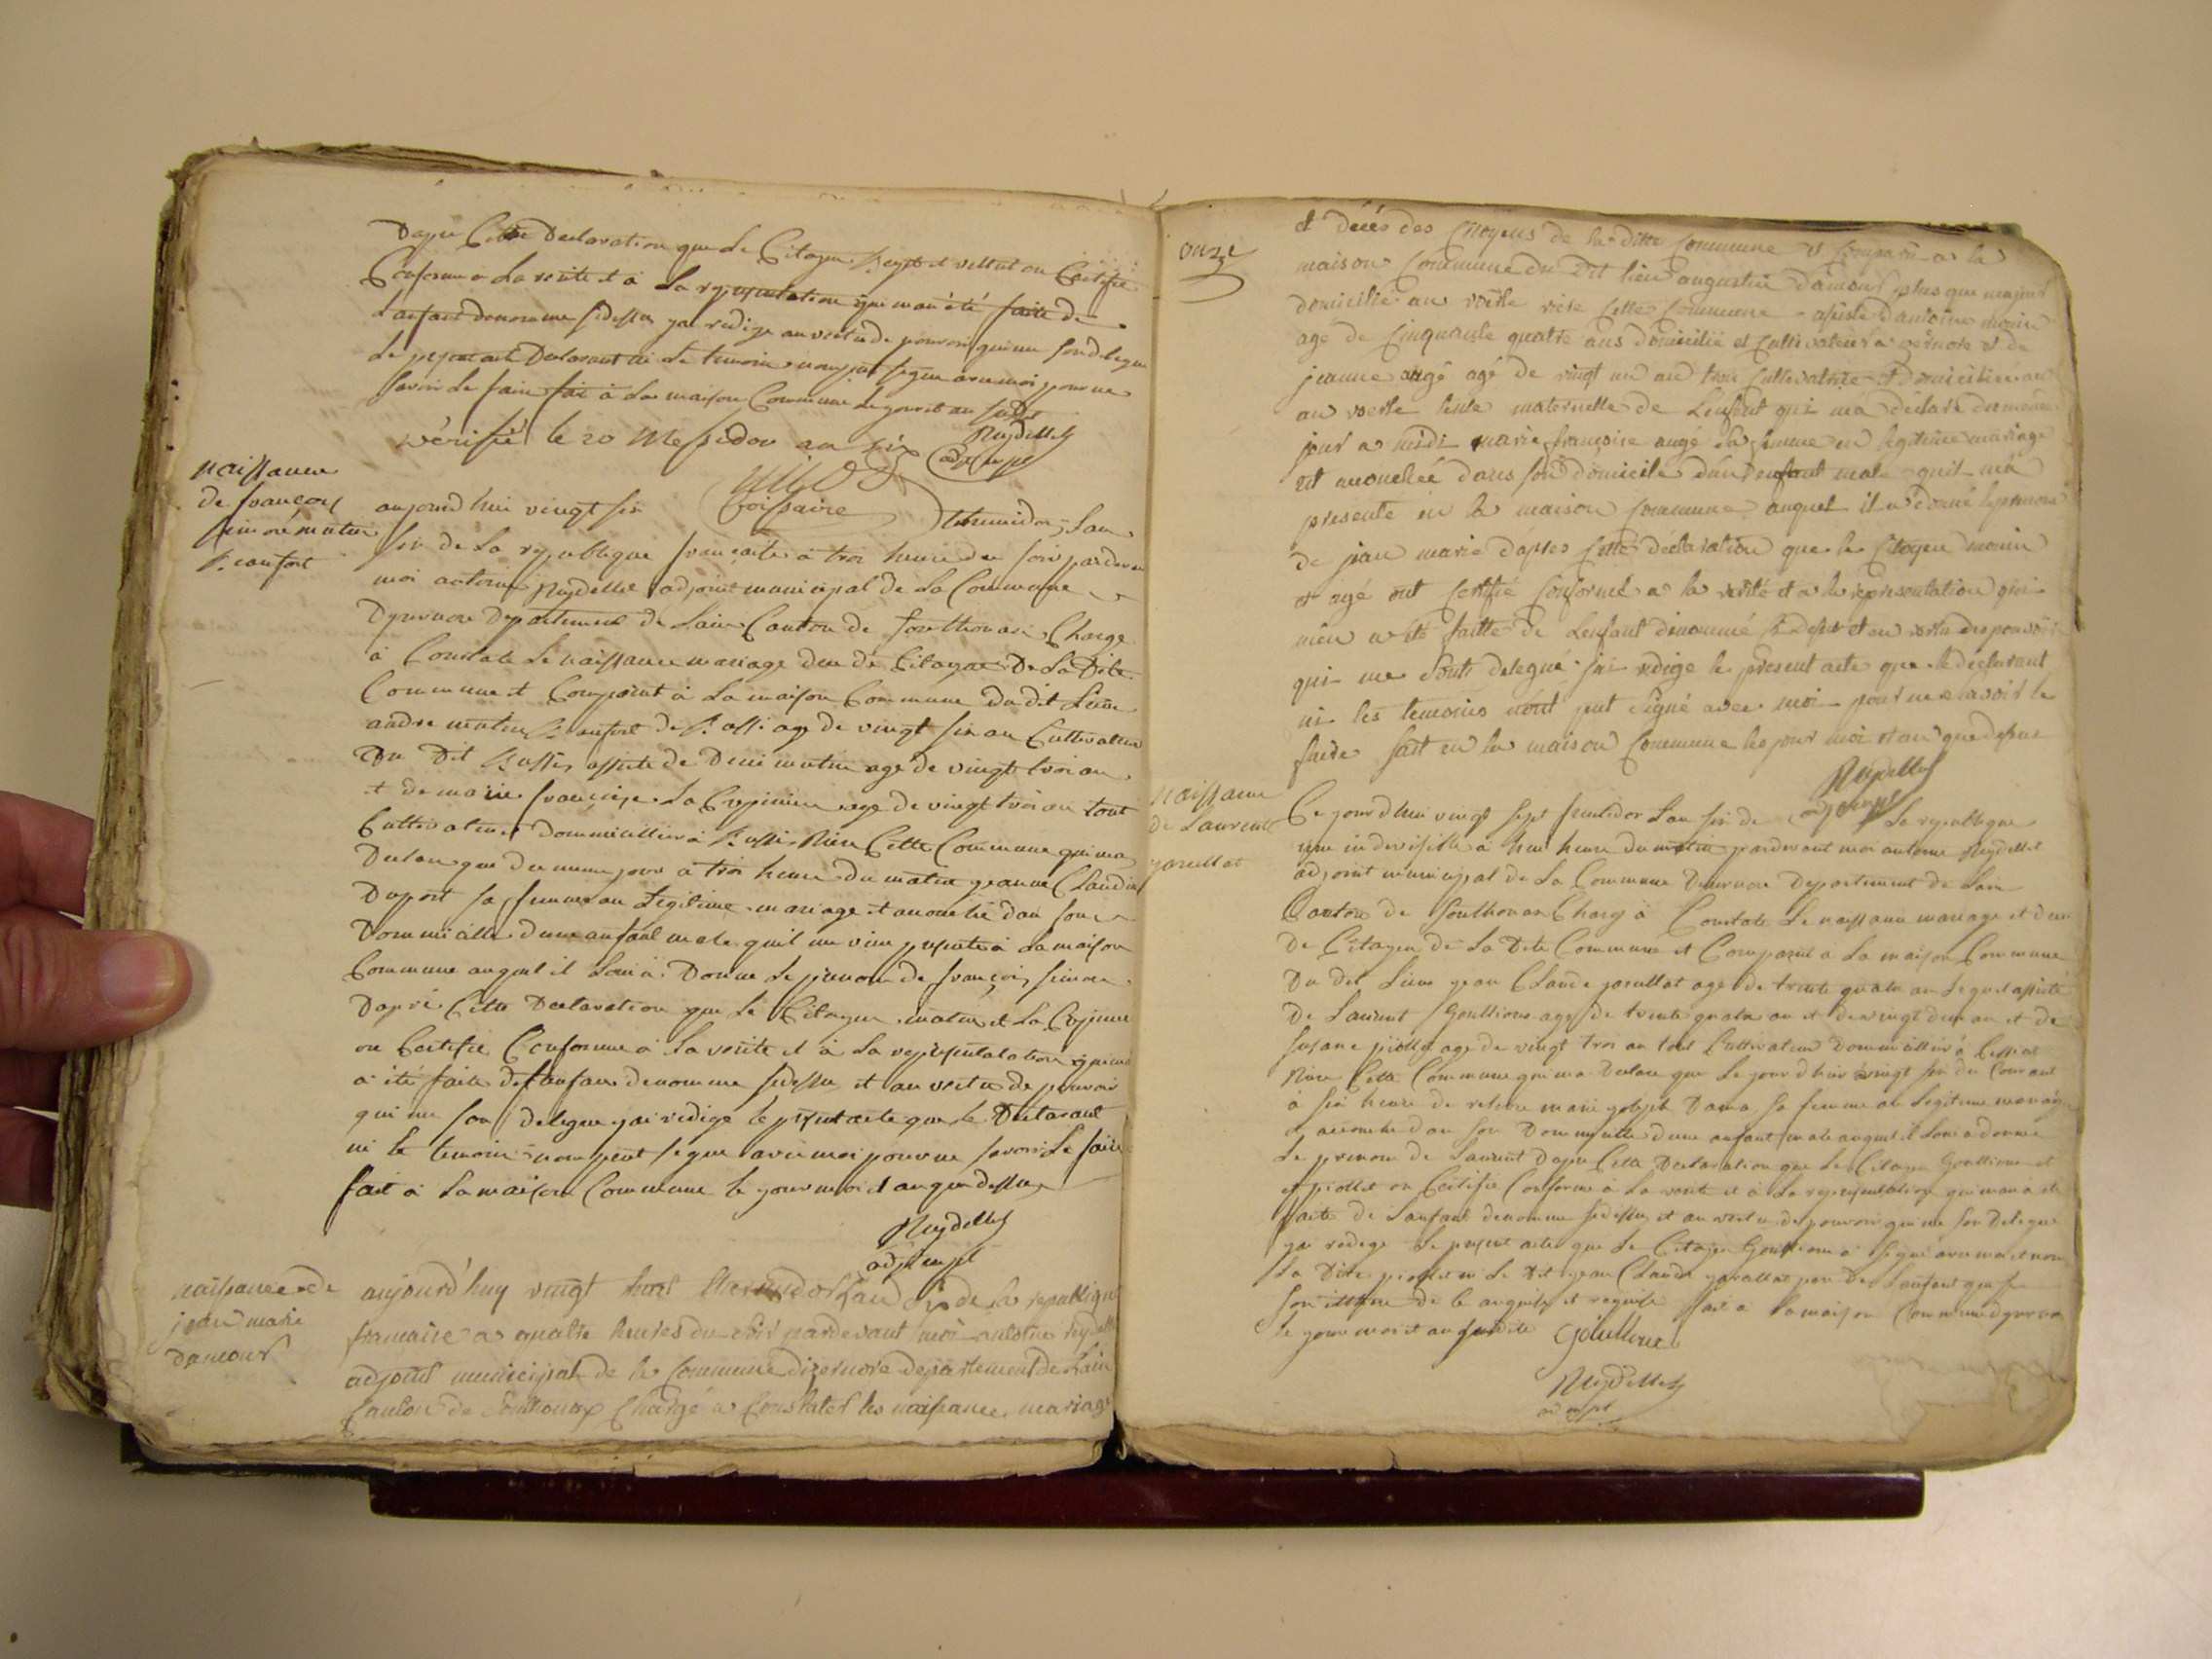 Dapré Cette Declaration que Le Citoyen et on Certifie
Conforme a La verité et à La representation qui man été faite de
Lanfant denomme sidessu jai redige au vertu de pouvoir qui me son delegue
Le present Declarant ni Le temoin nom put signe avec moi pour ne
savoir Le faire fait à La maison Commune Le jour et an susdit
Reydellet
adj mpl
vérifié le 20 Messidor an six
Coissaire
naissance
de françois
simon matin
st confort
aujourd hui vingt six thermidor Lan
six de La republique francaise à troi heure du soir pardevan
moi antoine Reydellet adjoint municipal de La Commune
Dysernore Departement de Lain Canton de Sonthonax Charge
à Constate Le naissance mariage dece de Citoyen De La Dite
Commune et Comparut à La maison Commune Du dit Lieu
andre matin age de vingt six an Cultivateur
Du Dit assiste de Deni matin age de vingt troi an
et de marie francoise La age de vingt troi an tout
Cultivateur Dommicillier à Riere Cette Commune qui ma
Declare que du meme jour à troi heure du matin jeanne Claudine
Duport sa femme an Legitime mariage et accouche dan son
Dommicille dune anfant male quil me vien presente à La maison
Commune auquel il Lui à Donne Le prenom de françois simon
Dapré Cette Declaration que Le Citoyen matin et La
on Certifie Conforme à La verité et à La representation qui ma
à été faite de Lanfan denomme sidessu et au vertu de pouvoir
qui me son delegue jai redige le present acte que le Declarant
ni le temoin nom peut signe avec moi pour ne savoir Le faire
fait à La maison Commune le jour moi et an que dessu
Reydellet
adj mpl
naissance de
jean marie
damour
aujourd'huy vingt thermidor Lan six de la republique
francaise a quatre heures du soir pardevant moi antoine reydellet
adjoint municipal de la Commune dizernore departement de Lain
Canton de Sonthonax Chargé a Constater les naissance mariage
onze
et décés des Citoyens de la ditte Commune et Comparu a la
maison Commune du dit lieu augustin damour plus que majeur
domicilié au voerle riere Cette Commune assisté dantoine monin
age de Cinquante quatre ans domicilié et Cultivateur a et de
jeanne augé agé de vingt un an tous Cultivatrice et domiciliée au
au voerle tente maternelle de Lenfant qui ma déclaré du meme
jour a midi marie françoise augé sa femme en legitime mariage
est accouchée dans son domicile dun enfant male quil ma
presenté en la maison Commune auquel il a donné le prenom
de jean marie daprès Cette déclaration que le Citoyen monin
et agé ont Certifié Conforme a la verité et a la representation qui
men a été faitte de Lenfant dénommé si dessus et en vertu des pouvoirs
qui me sonts delegué jai redige le present acte que le déclarant
ni les temoins nont put signé avec moi pour ne savoir le
faire fait en la maison Commune les jour moi et an que dessus
Reydellet
adj mpl
naissance
de Laurent
jarullat
Ce jourd hui vingt sept Lan six de La republique
une indivisible à huit heure du matin pardevant moi antoine Reydellet
adjoint municipal de La Commune Departement de Lain
Canton de Sonthonax Charg à Constate Le naissance mariage et dece
De Citoyen de La Dite Commune et Comparut à La maison Commune
Du dit Lieu jean Claude jarullat age de trente quatre an Lequel assisté
De Laurent Goullioux age de trente quatre an et de vingt deux an et de
susane piollet age de vingt troi an tout Cultivateur Dommicillier à
Riere Cette Commune qui ma Declare que Le jour dhier vingt six du Courant
à six heure de marie joseph Dama sa femme an Legitime mariage
et accouche dan son Dommicille dune anfant male auquel il Lui a donné
Le prenom de Laurent Dapré Cette Declaration que Le Citoyen Goullioux et
et piollet on Certifie Conforme à La verité et à La representation qui man à été
faite de Lanfant denomme sidessu et au vertu de pouvoir qui me son Delegue
jai redige Le present acte que Le Citoyen Goullioux à signe avec moi et non
La Dite piollet ni Le Dit jean Claude jarullat pere De Lanfant que
son illittre de le anquis et requis fait à La maison Commune
Le jour moi et an susdite Goullioux
Reydellet
adj mpl